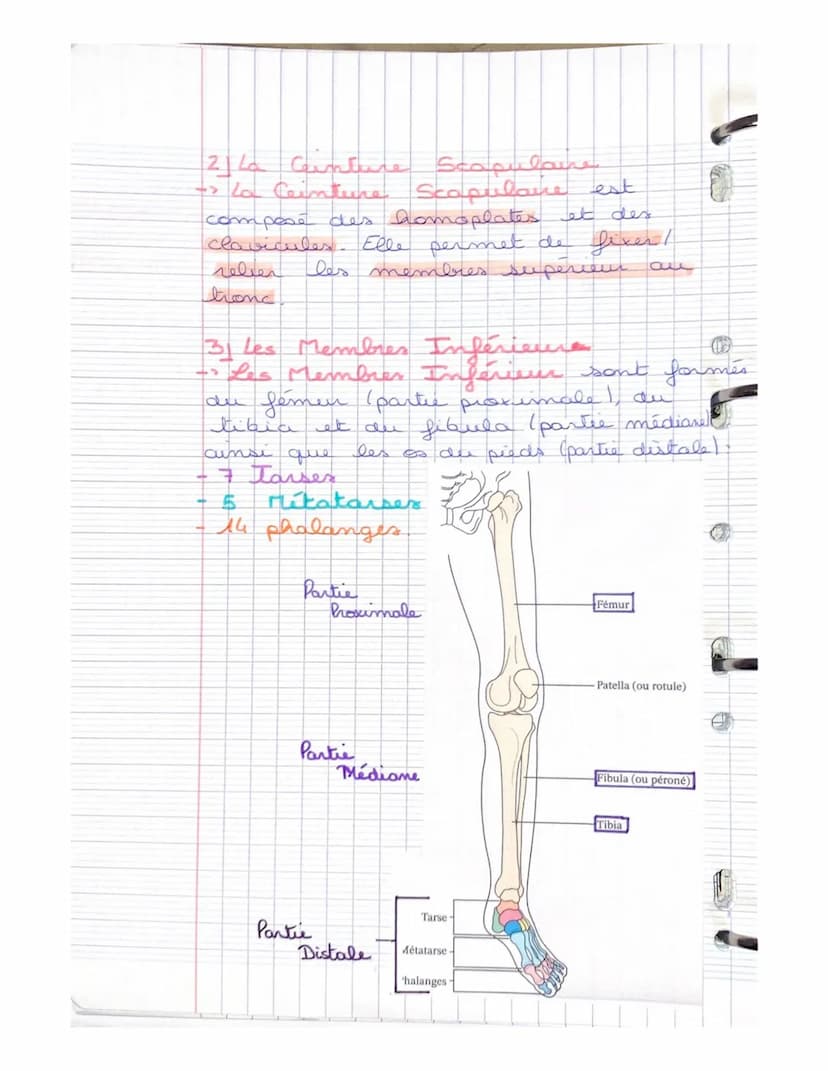 2) La Ceinture Scapulaire
-> La Ceinture Scapulaire est
composé des homoplates et des
clavicules. Elle permet de fixer/
relier les membres supérieur au
tronc.
3) Les Membres Inférieurs
-> Les Membres Inférieur sont formés
du fémur (partie proximale), du
tibia et du fibula (partie médiane)
ainsi que les os du pieds (partie distale).
- 7 Tarses
- 5 Métatarses
- 14 phalanges.
Partie
Proximale
Fémur
Patella (ou rotule)
Partie
Médiane
Fibula (ou péroné)
Tibia
Partie
Distale
Tarse
Métatarse
halanges